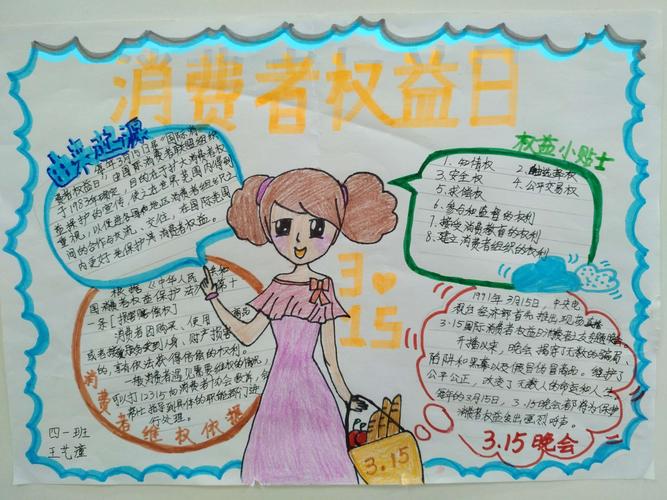 消费者权益日
由来放一课
每年3月15日是"国际消
费者权益日",由国际消费者联盟组织
于1983年确定,目的在于扩大消费者权
益保护的宣传,使之在世界范围内得到
重视,以促进各国和地区消费者组织之
间的合作与交流、交往,在国际范围
内更好地保护消费者权益。
权益小贴士
1. 知情权 2. 选择权
3. 安全权 4. 公平交易权
5. 求偿权
6. 参与和监督的权利
7. 接受消费教育的权利
8. 建立消费者组织的权利
3
15
根据《中华人民共和
国消费者权益保护法》第十
一条【损害赔偿权】
消费者因购买、使用商品
或者接受服务受到人身、财产损害
的,享有依法获得赔偿的权利。
一般消费者遇见需要维权的情况,
可以打12315向消费者协会
行处理。
消费者维权依据
1991年3月15日,中央电
视台经济部首先推出现场直播
3·15国际消费者权益日消费者之友专题晚会。
开播以来,晚会揭穿了无数的骗局
陷阱和黑幕以及假冒伪冒商品。维护了
公平公正,改变了无数人的命运和人生
每年的3月15日,3·15晚会都将为保护
消费者权益发出强烈呼声。
3.15晚会
3.15
四一班
王艺潼